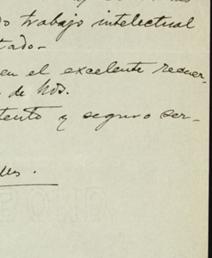 do trabajo intelectual
tado.-
en el excelente recuer-
de hds.
tento y seguro ser-